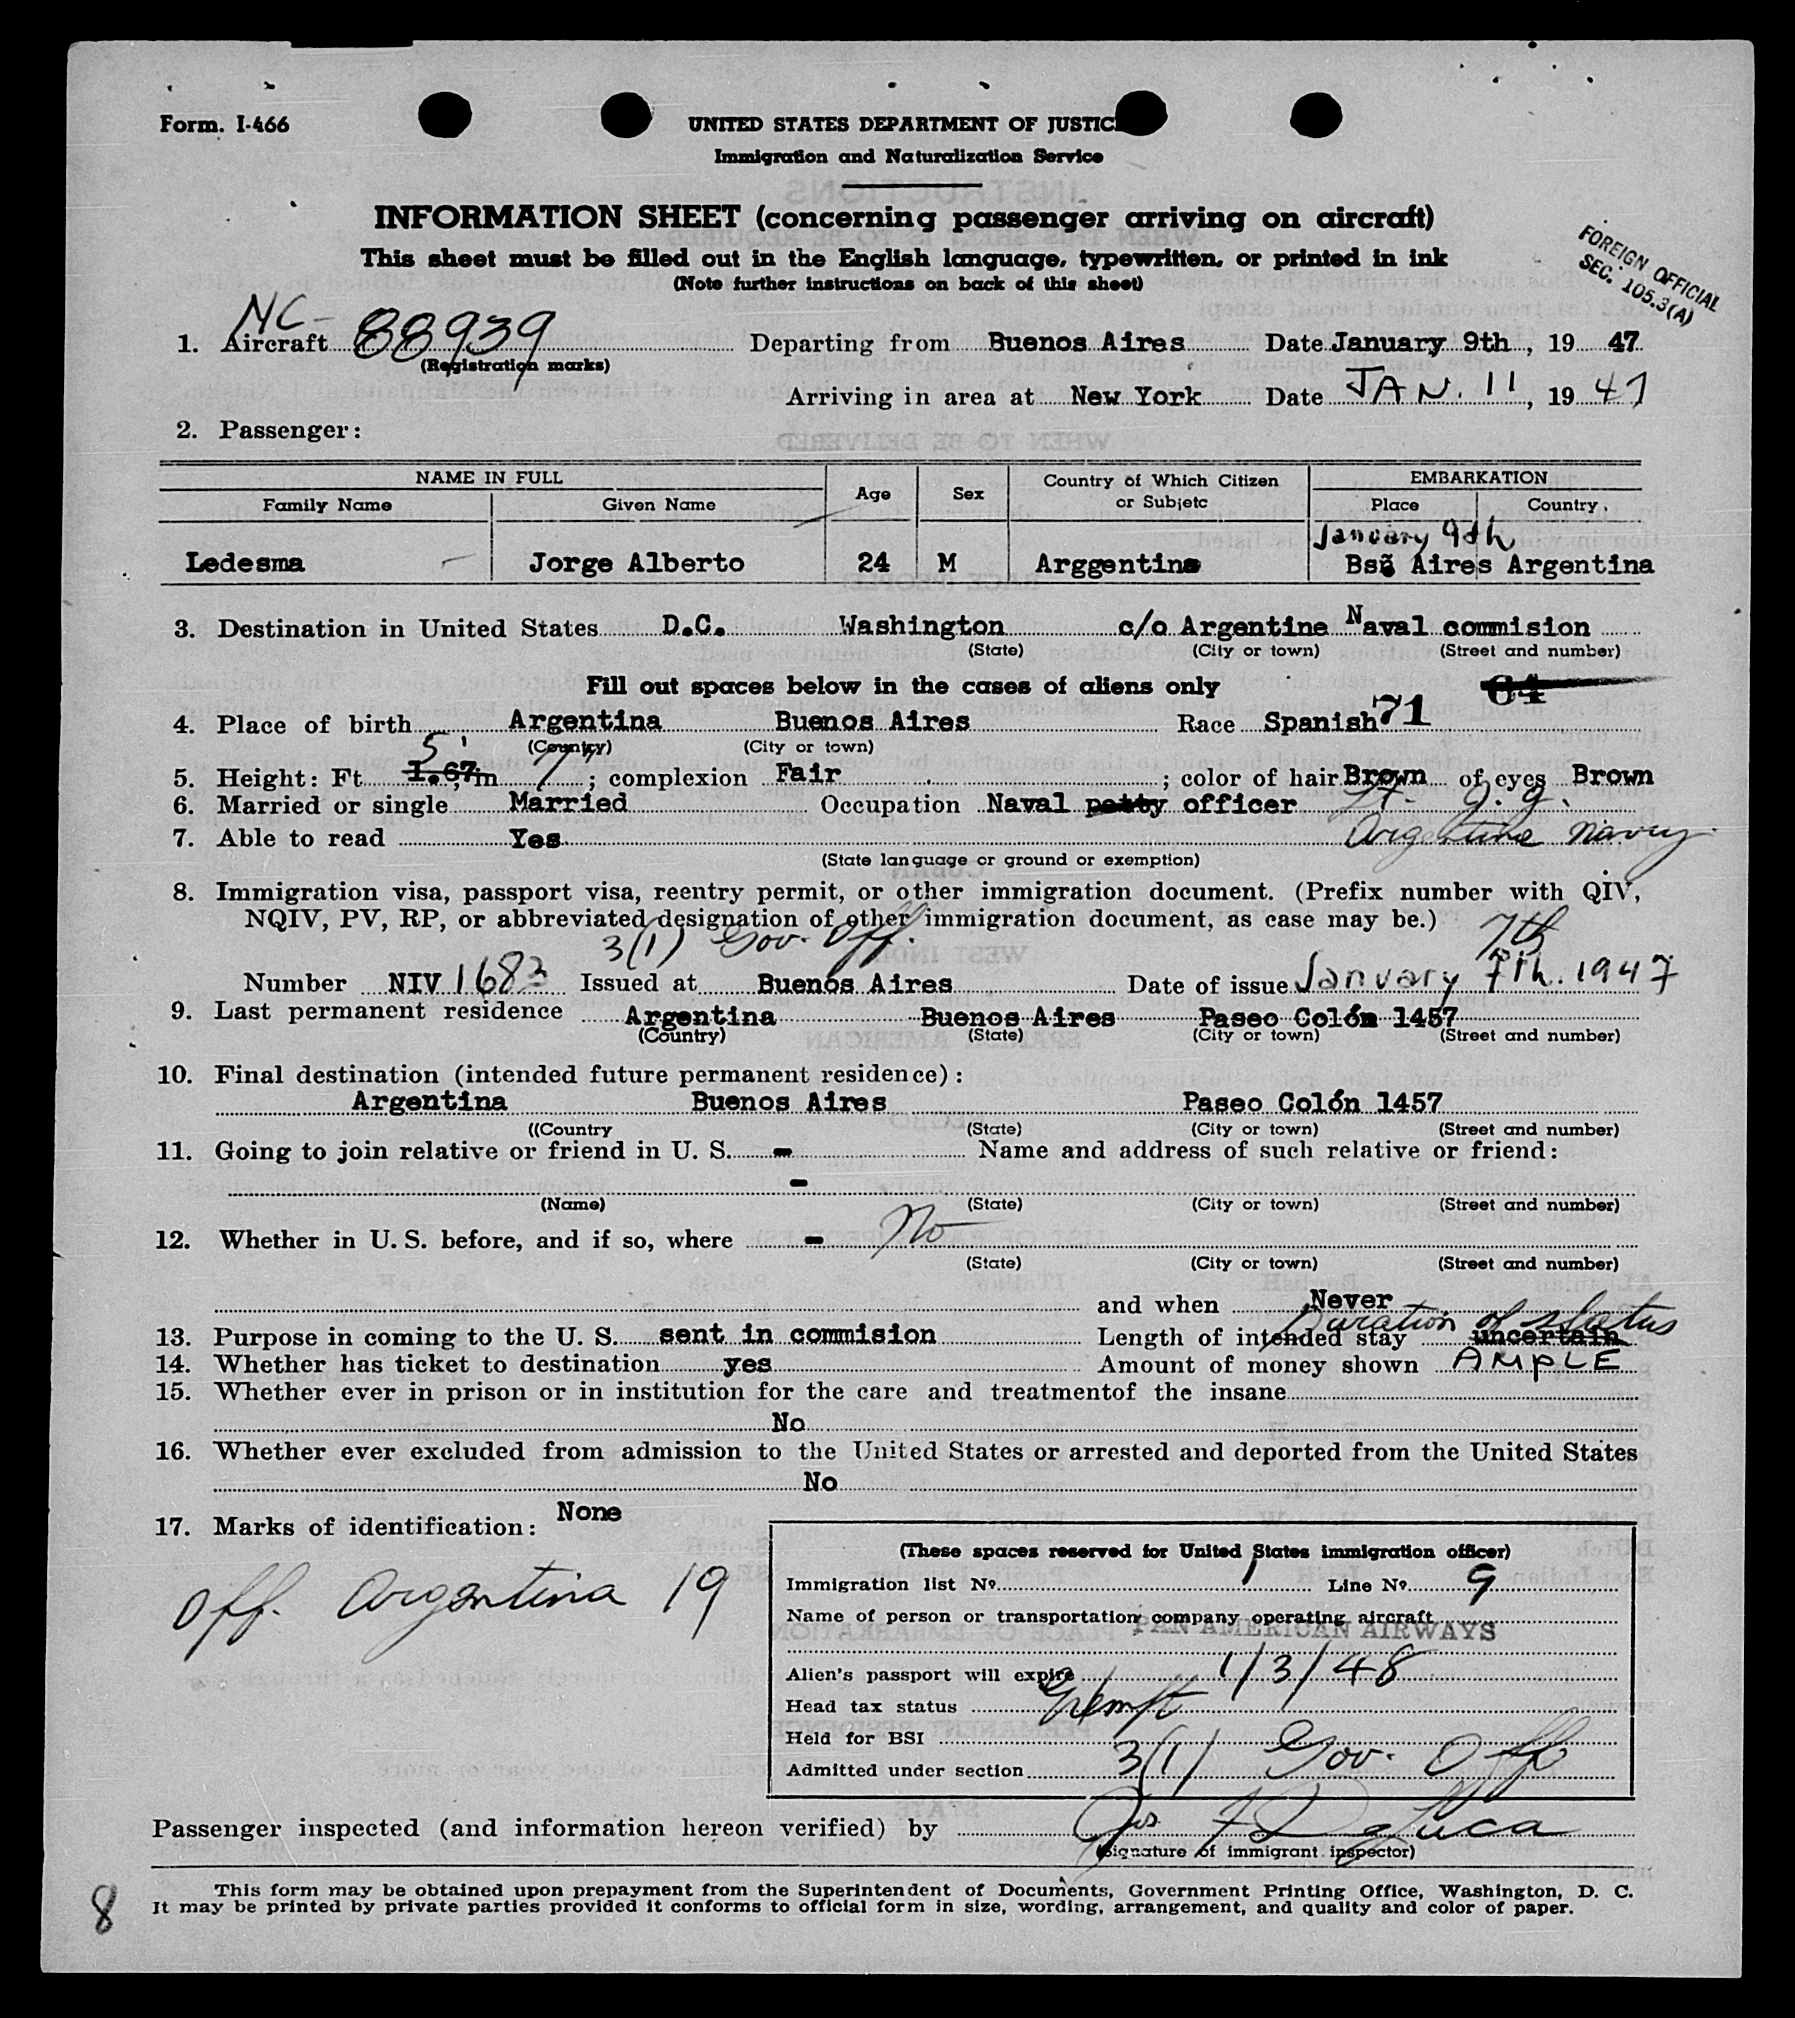 Form. I-466
UNITED STATES DEPARTMENT OF JUSTIC
Immigration and Naturalization Service
INFORMATION SHEET (concerning passenger arriving on aircraft)
This sheet must be filled out in the English language, typewritten, or printed in ink
(Note further instructions on back of this sheet)
FOREIGN OFFICIAL
SEC. 105.3(A)
1. Aircraft NC- 88939 Departing from Buenos Aires Date January 9th, 19 47
(Registration marks)
Arriving in area at New York Date JAN. 11, 19 47
2. Passenger:
NAME IN FULL Age Sex Country of Which Citizen or Subjetc EMBARKATION
Family Name Given Name Place Country.
January 9th
Ledesma Jorge Alberto 24 M Arggentina Bs Aires Argentina
3. Destination in United States D.C. Washington c/o Argentine Naval commision
(State) (City or town) (Street and number)
Fill out spaces below in the cases of aliens only 64
4. Place of birth Argentina Buenos Aires Race Spanish 71
(Country) (City or town)
5. Height: Ft 5' 1.67, in 7"; complexion Fair; color of hair Brown of eyes Brown
6. Married or single Married Occupation Naval petty officer Lt. J.g.
7. Able to read Yes Argentine Navy
(State language or ground or exemption)
8. Immigration visa, passport visa, reentry permit, or other immigration document. (Prefix number with QIV,
NQIV, PV, RP, or abbreviated designation of other immigration document, as case may be.)
3(1) Gov. Off. 7th
Number NIV 1683 Issued at Buenos Aires Date of issue January 7th. 1947
9. Last permanent residence Argentina Buenos Aires Paseo Colón 1457
(Country) (State) (City or town) (Street and number)
10. Final destination (intended future permanent residence):
Argentina Buenos Aires Paseo Colón 1457
((Country (State) (City or town) (Street and number)
11. Going to join relative or friend in U. S. - Name and address of such relative or friend:
-
(Name) (State) (City or town) (Street and number)
12. Whether in U. S. before, and if so, where - No
(State) (City or town) (Street and number)
and when Never
Duration of status
13. Purpose in coming to the U. S. sent in commision Length of intended stay uncertain
14. Whether has ticket to destination yes Amount of money shown AMPLE
15. Whether ever in prison or in institution for the care and treatmentof the insane
No
16. Whether ever excluded from admission to the United States or arrested and deported from the United States
No
17. Marks of identification: None
Off. Argentina 19
(These spaces reserved for United States immigration officer)
Immigration list Nº 1 Line Nº 9
Name of person or transportation company operating aircraft
PAN AMERICAN AIRWAYS
Alien's passport will expire 1/3/48
Head tax status Exempt
Held for BSI
Admitted under section 3(1) Gov. Off
Passenger inspected (and information hereon verified) by Jos F DeLuca
(Signature of immigrant inspector)
This form may be obtained upon prepayment from the Superintendent of Documents, Government Printing Office, Washington, D. C.
It may be printed by private parties provided it conforms to official form in size, wording, arrangement, and quality and color of paper.
8